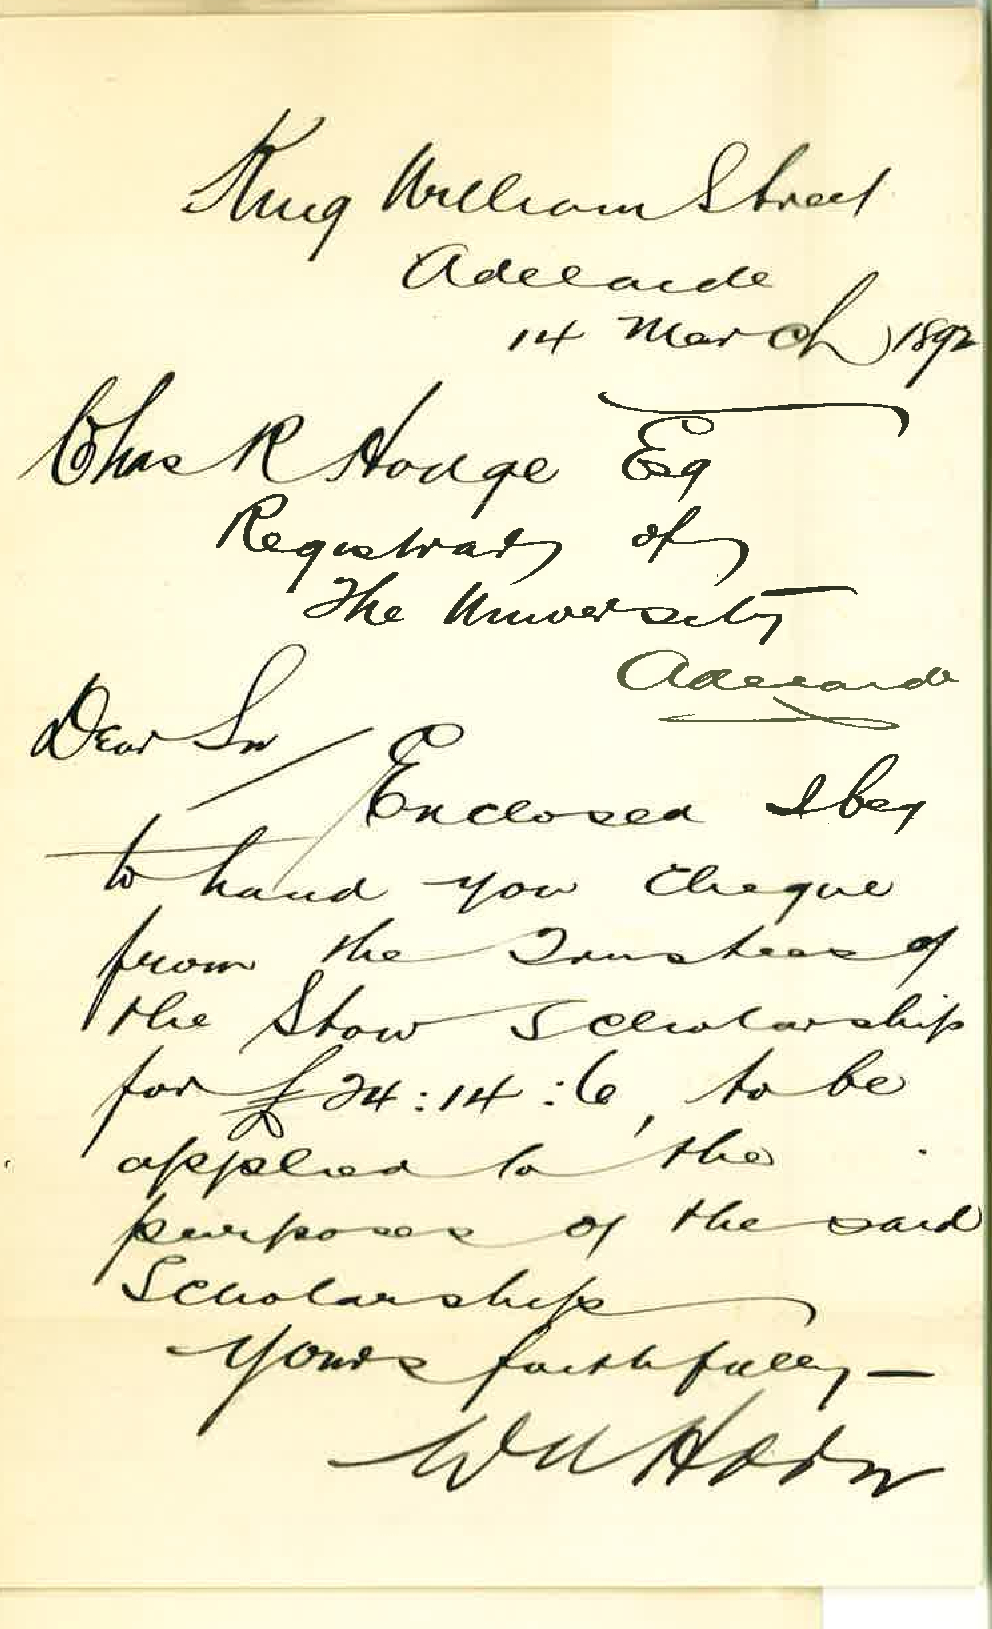 King William Street
Adelaide
14 March 1892
Chas R Hodge Esq
Registrar of
The University
Adelaide
Dear Sir
Enclosed I beg
to hand you cheque
from the Trustees of
the Stow Scholarship
for £24:14:6, to be
applied to the
purposes of the said
Scholarship
Yours faithfully—